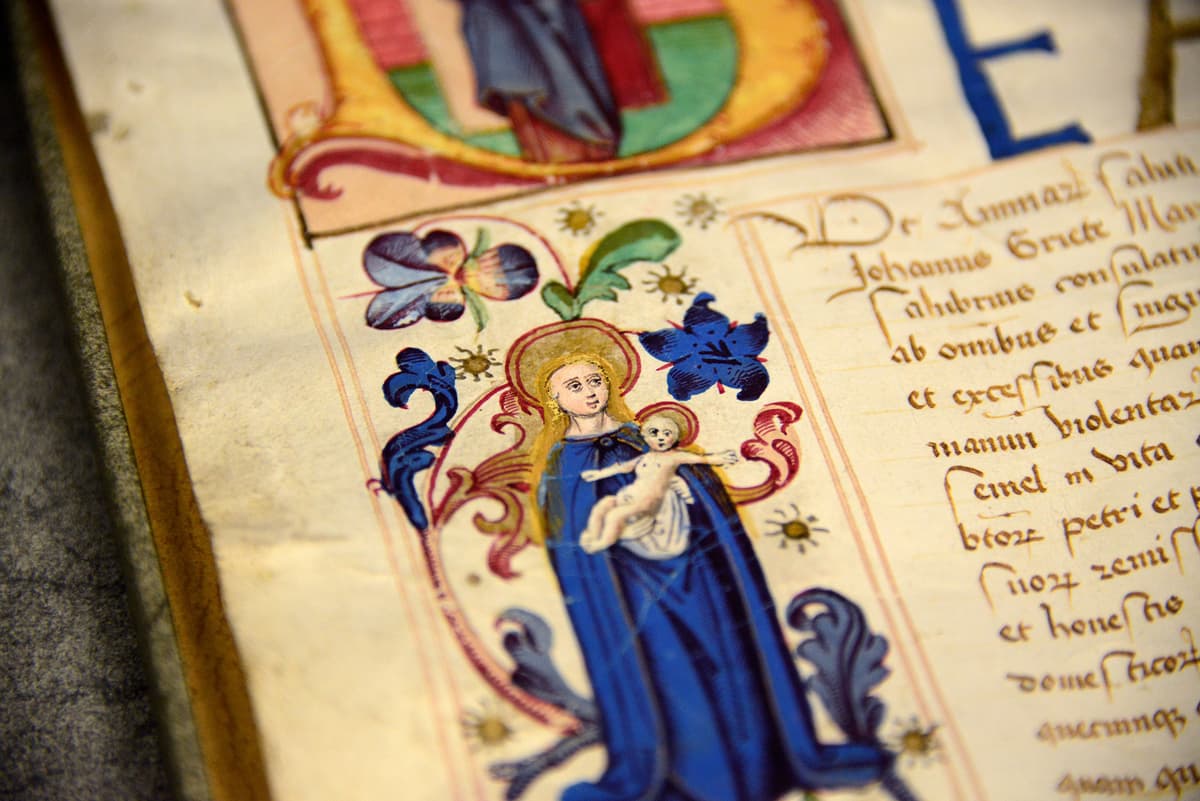 E A
De Ximinarʒ salut
Johannes Griete Mar
salubrius consulatur
ab omibus et singu
et excessibus quam
manuu violentaꝝ
semel in vita
btoꝝ petri et p
suoꝝ remiss
et honestis
domesticoꝝ
quecunqꝫ
quam qu